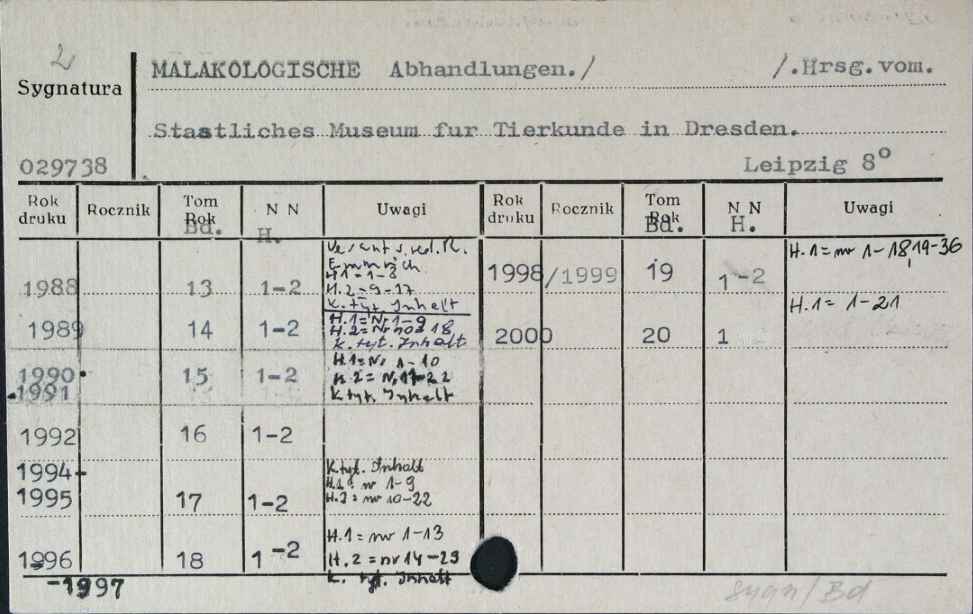 2
Sygnatura
029738
MALAKOLOGISCHE Abhandlungen./ /.Hrsg.vom.
Staatliches Museum fur Tierkunde in Dresden.
Leipzig 8º
Rok druku Rocznik Tom Rok Bd. N N H. Uwagi Rok druku Rocznik Tom Rok Bd. N N H. Uwagi
1988 13 1-2
H.1=1-8
H.2=9-17
K. tyt. Inhalt
1989 14 1-2
H.1=Nr 1-9
H.2=Nr 18
K. tyt. Inhalt
1990 15 1-2
1991
H.1=Nr 1-10
H.2=Nr 11-22
K tyt. Inhalt
1992 16 1-2
1994-
1995 17 1-2
K. tyt. Inhalt
H.1= nr 1-9
H.2= nr 10-22
1996 18 1-2
-1997
H.1= nr 1-13
H.2=nr 14-29
K. tyt. Inhalt
1998/1999 19 1-2 H.1= nr 1-18, 19-36
2000 20 1 H.1= 1-21
/Bd